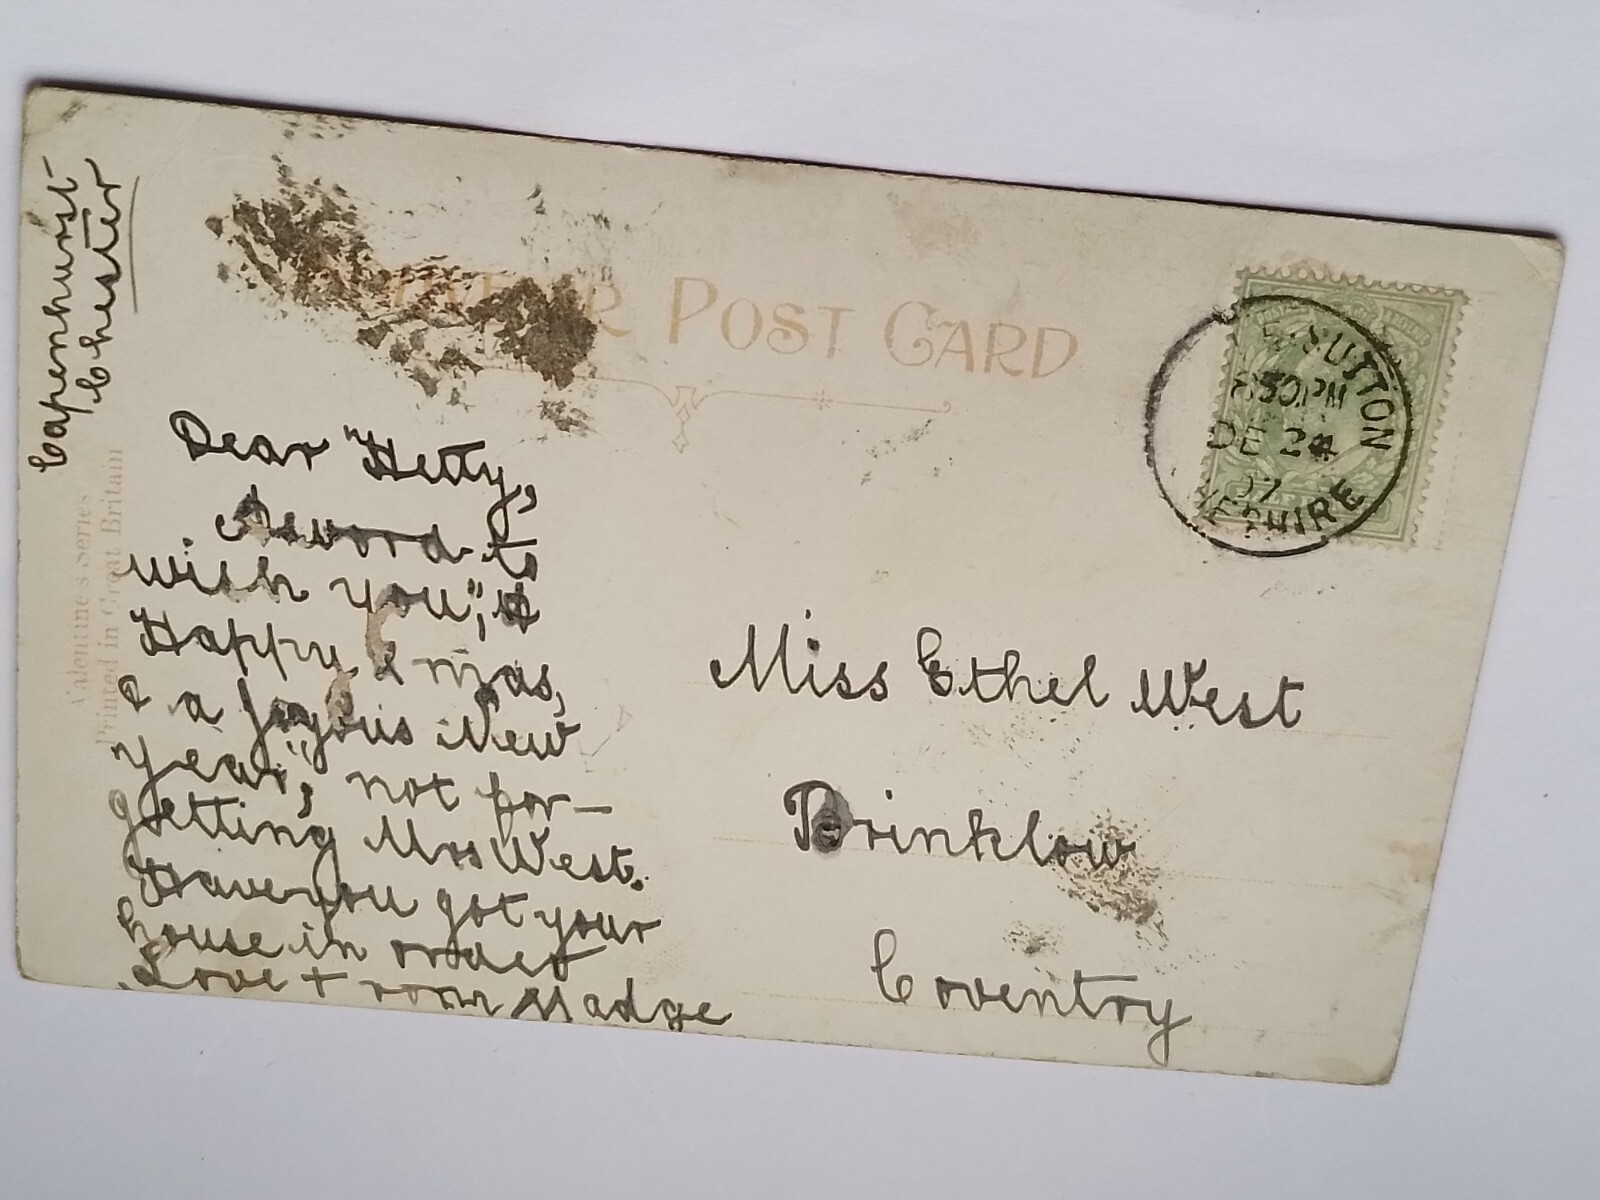 Capenhurst
Chester
POST CARD
Valentine's Series
Printed in Great Britain
Dear "Hetty,
A word to
wish you", a
Happy Xmas,
& a joyous New
Year", not for-
getting Mrs West.
Have you got your
house in order
Love + from Madge
SUTTON
30 PM
DE 24
07
Miss Ethel West
Brinklow
Coventry